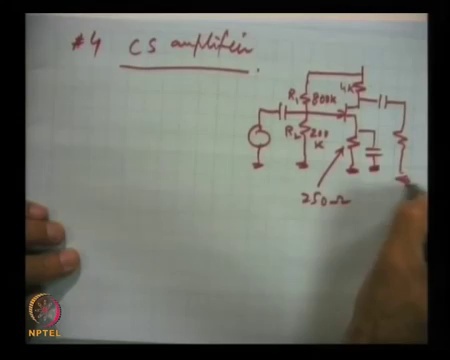 #4 CS amplifier
R1 800k
4k
R2 200
K
250Ω
NPTEL